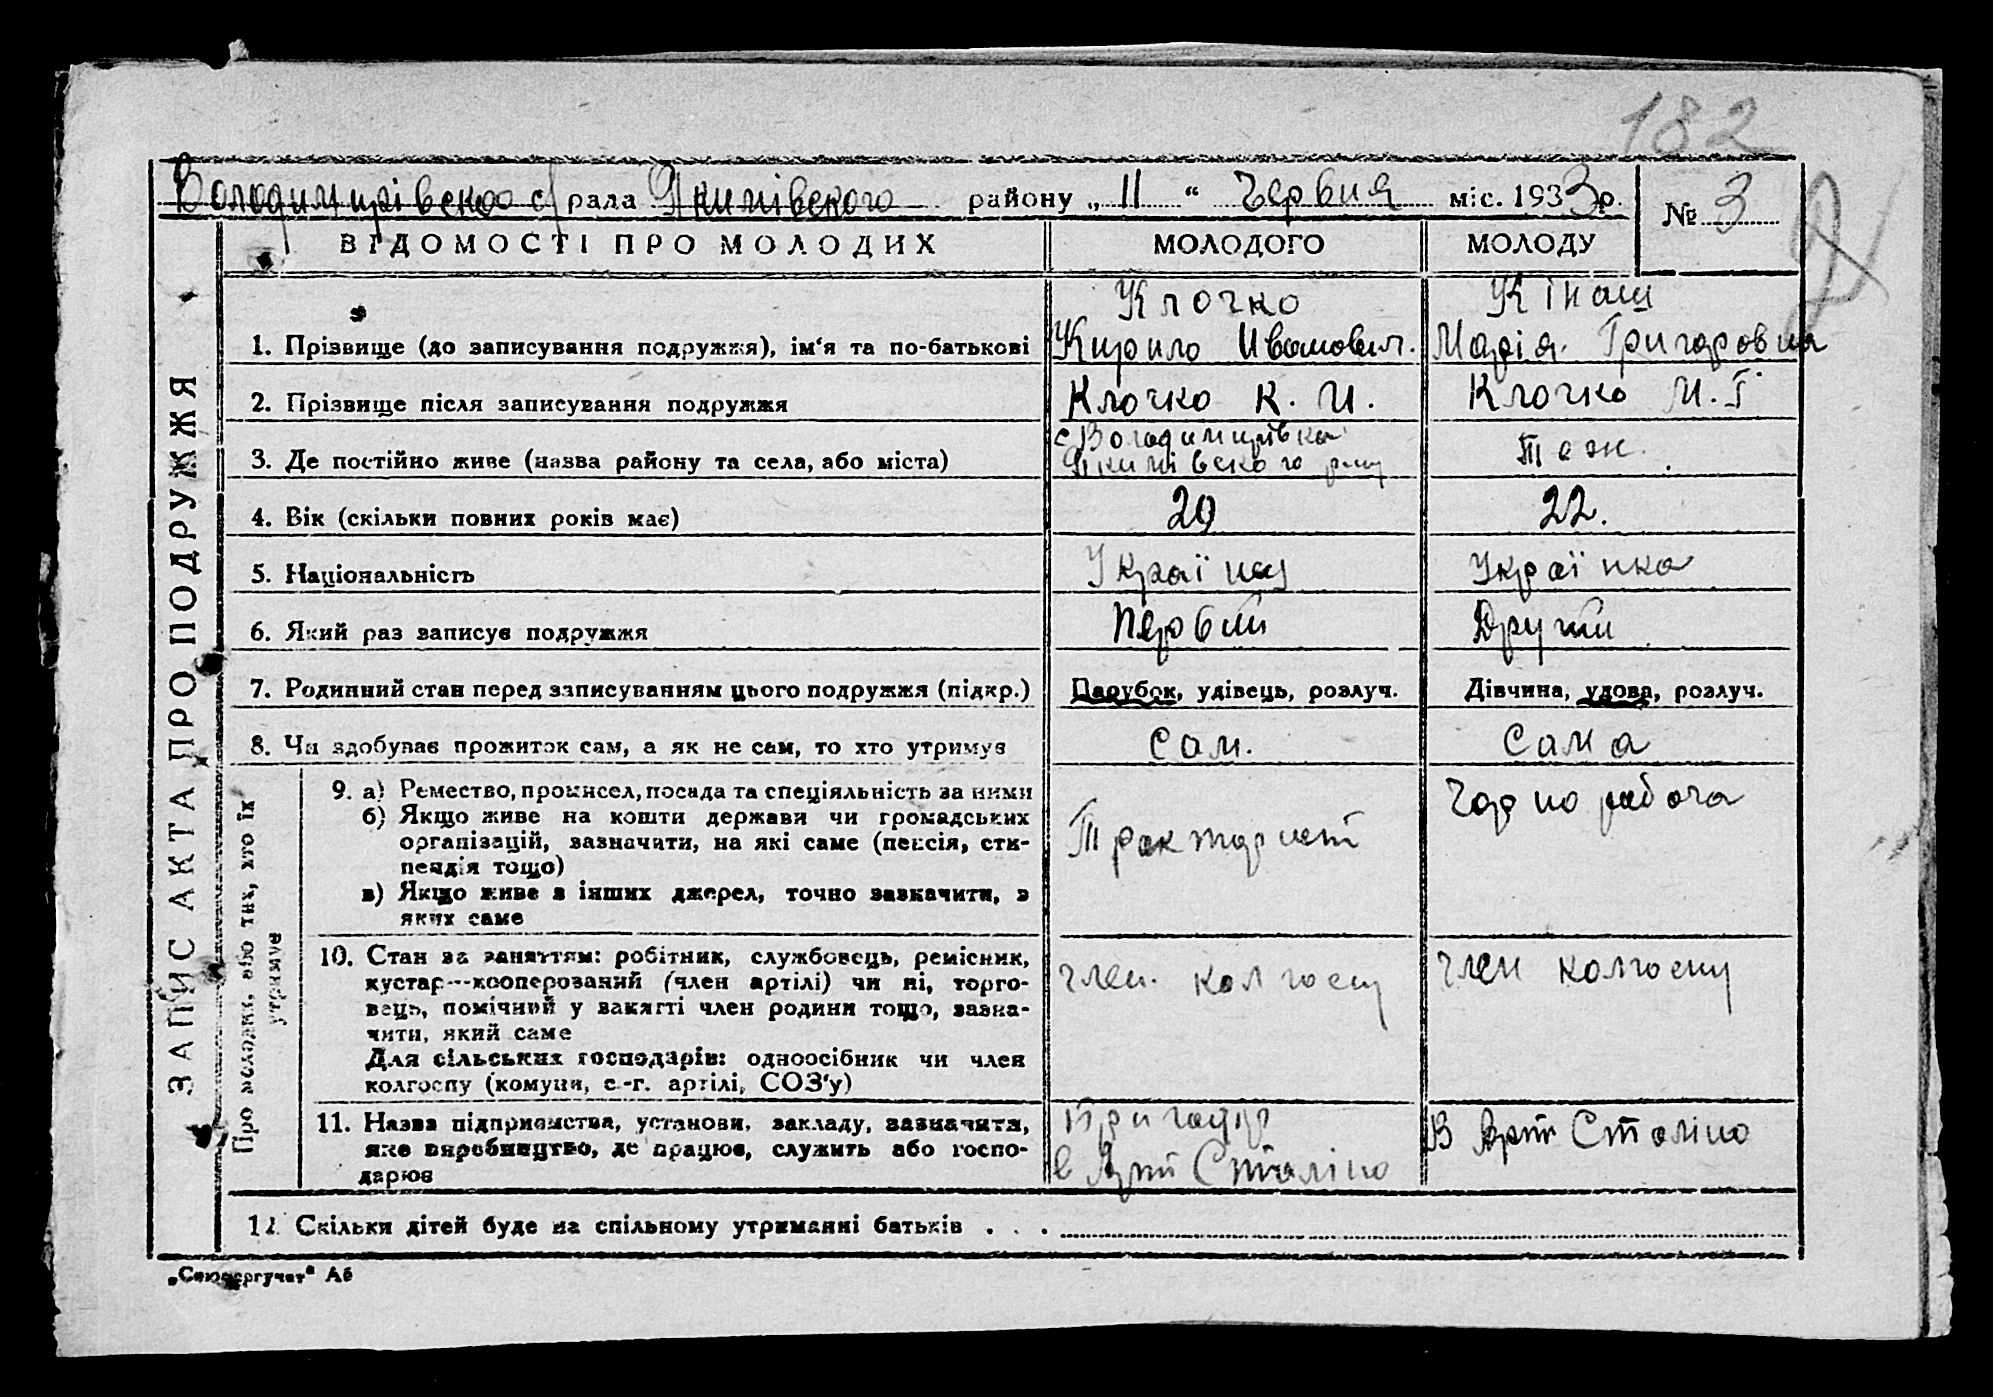 182
Володимирівсько с/рада Якимівского району „ 11 “ Червня міс. 1933 р.
№ 3
ВІДОМОСТІ ПРО МОЛОДИХ МОЛОДОГО МОЛОДУ
ЗАПИС АКТА ПРО ПОДРУЖЖЯ
Клочко Кінаш
1. Прізвище (до записування подружжя), ім‘я та по-батькові Кирило Иванович. Марія Григоровна
2. Прізвище після записування подружжя Клочко К. И. Клочко М. Г
с Володимирівка
3. Де постійно живе (назва району та села, або міста) Якимівского рону Тож.
4. Вік (скільки повних років має) 20 22.
5. Національність Українц Українка
6. Який раз записує подружжя Первий Другий
7. Родинний стан перед записуванням цього подружжя (підкр.) Парубок, удівець, розлуч. Дівчина, удова, розлуч.
8. Чи здобуває прожиток сам, а як не сам, то хто утримує Сам. Сама
Про молодих, або тих, хто їх утримує
9. а) Ремество, промисел, посада та спеціяльність за ними
б) Якщо живе на кошти держави чи громадських
організацій, зазначити, на які саме (пенсія, сти-
пендія тощо)
в) Якщо живе з інших джерел, точно зазначити, з
яких саме
Тракторист Чорно рабоча
10. Стан за заняттям: робітник, службовець, ремісник,
кустар—кооперований (член артілі) чи ні, торго-
вець, помічний у занятті член родини тощо, зазна-
чити, який саме
Для сільських господарів: одноосібник чи член
колгоспу (комуни, с.-г. артілі, СОЗ‘у)
член. колгоспу член колгоспу
11. Назва підприємства, установи, закладу, зазначити,
яке виробництво, де працює, служить або госпо-
дарює
в Арт Сталіна В Арт Сталіна
12. Скільки дітей буде на спільному утриманні батьків . . .
„Союзоргучет“ А6